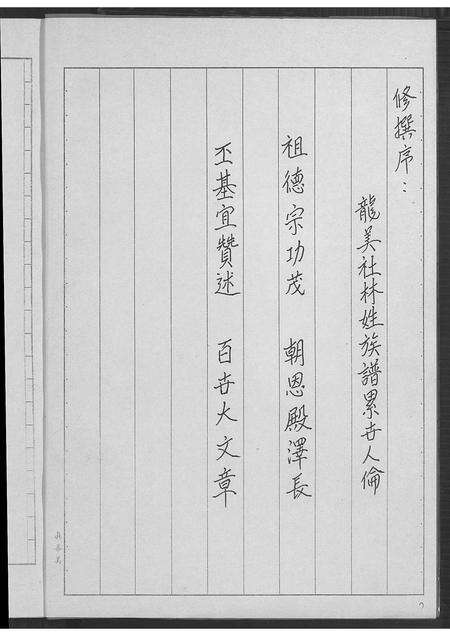 修撰序：
龍美社林姓族譜累世人倫
祖德宗功茂　朝恩殿澤長
丕基宜贊述　百世大文章